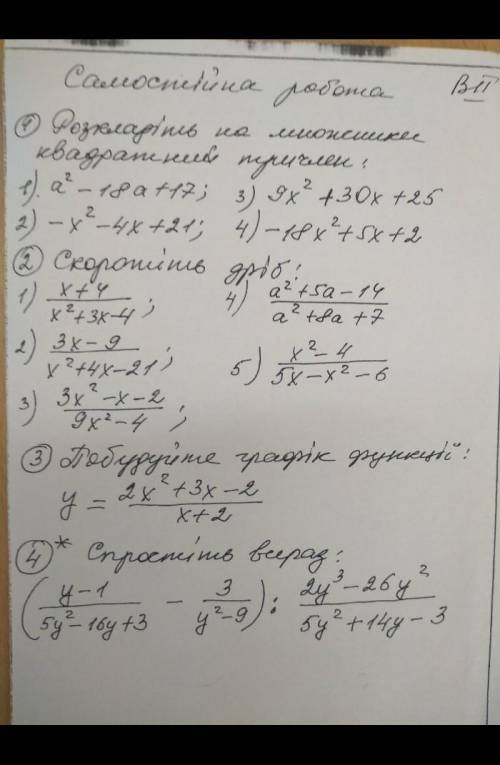 Самостійна робота ВІІ
① Розкладіть на множники
квадратний тричлен:
1) a² - 18a + 17; 3) 9x² + 30x + 25
2) -x² - 4x + 21; 4) -18x² + 5x + 2
② Скоротіть дріб:
1) (x+4)/(x²+3x-4); 4) (a²+5a-14)/(a²+8a+7)
2) (3x-9)/(x²+4x-21); 5) (x²-4)/(5x-x²-6)
3) (3x²-x-2)/(9x²-4);
③ Побудуйте графік функції:
y = (2x²+3x-2)/(x+2)
④* Спростіть вираз:
((y-1)/(5y²-16y+3) - 3/(y²-9)) : (2y³-26y²)/(5y²+14y-3)